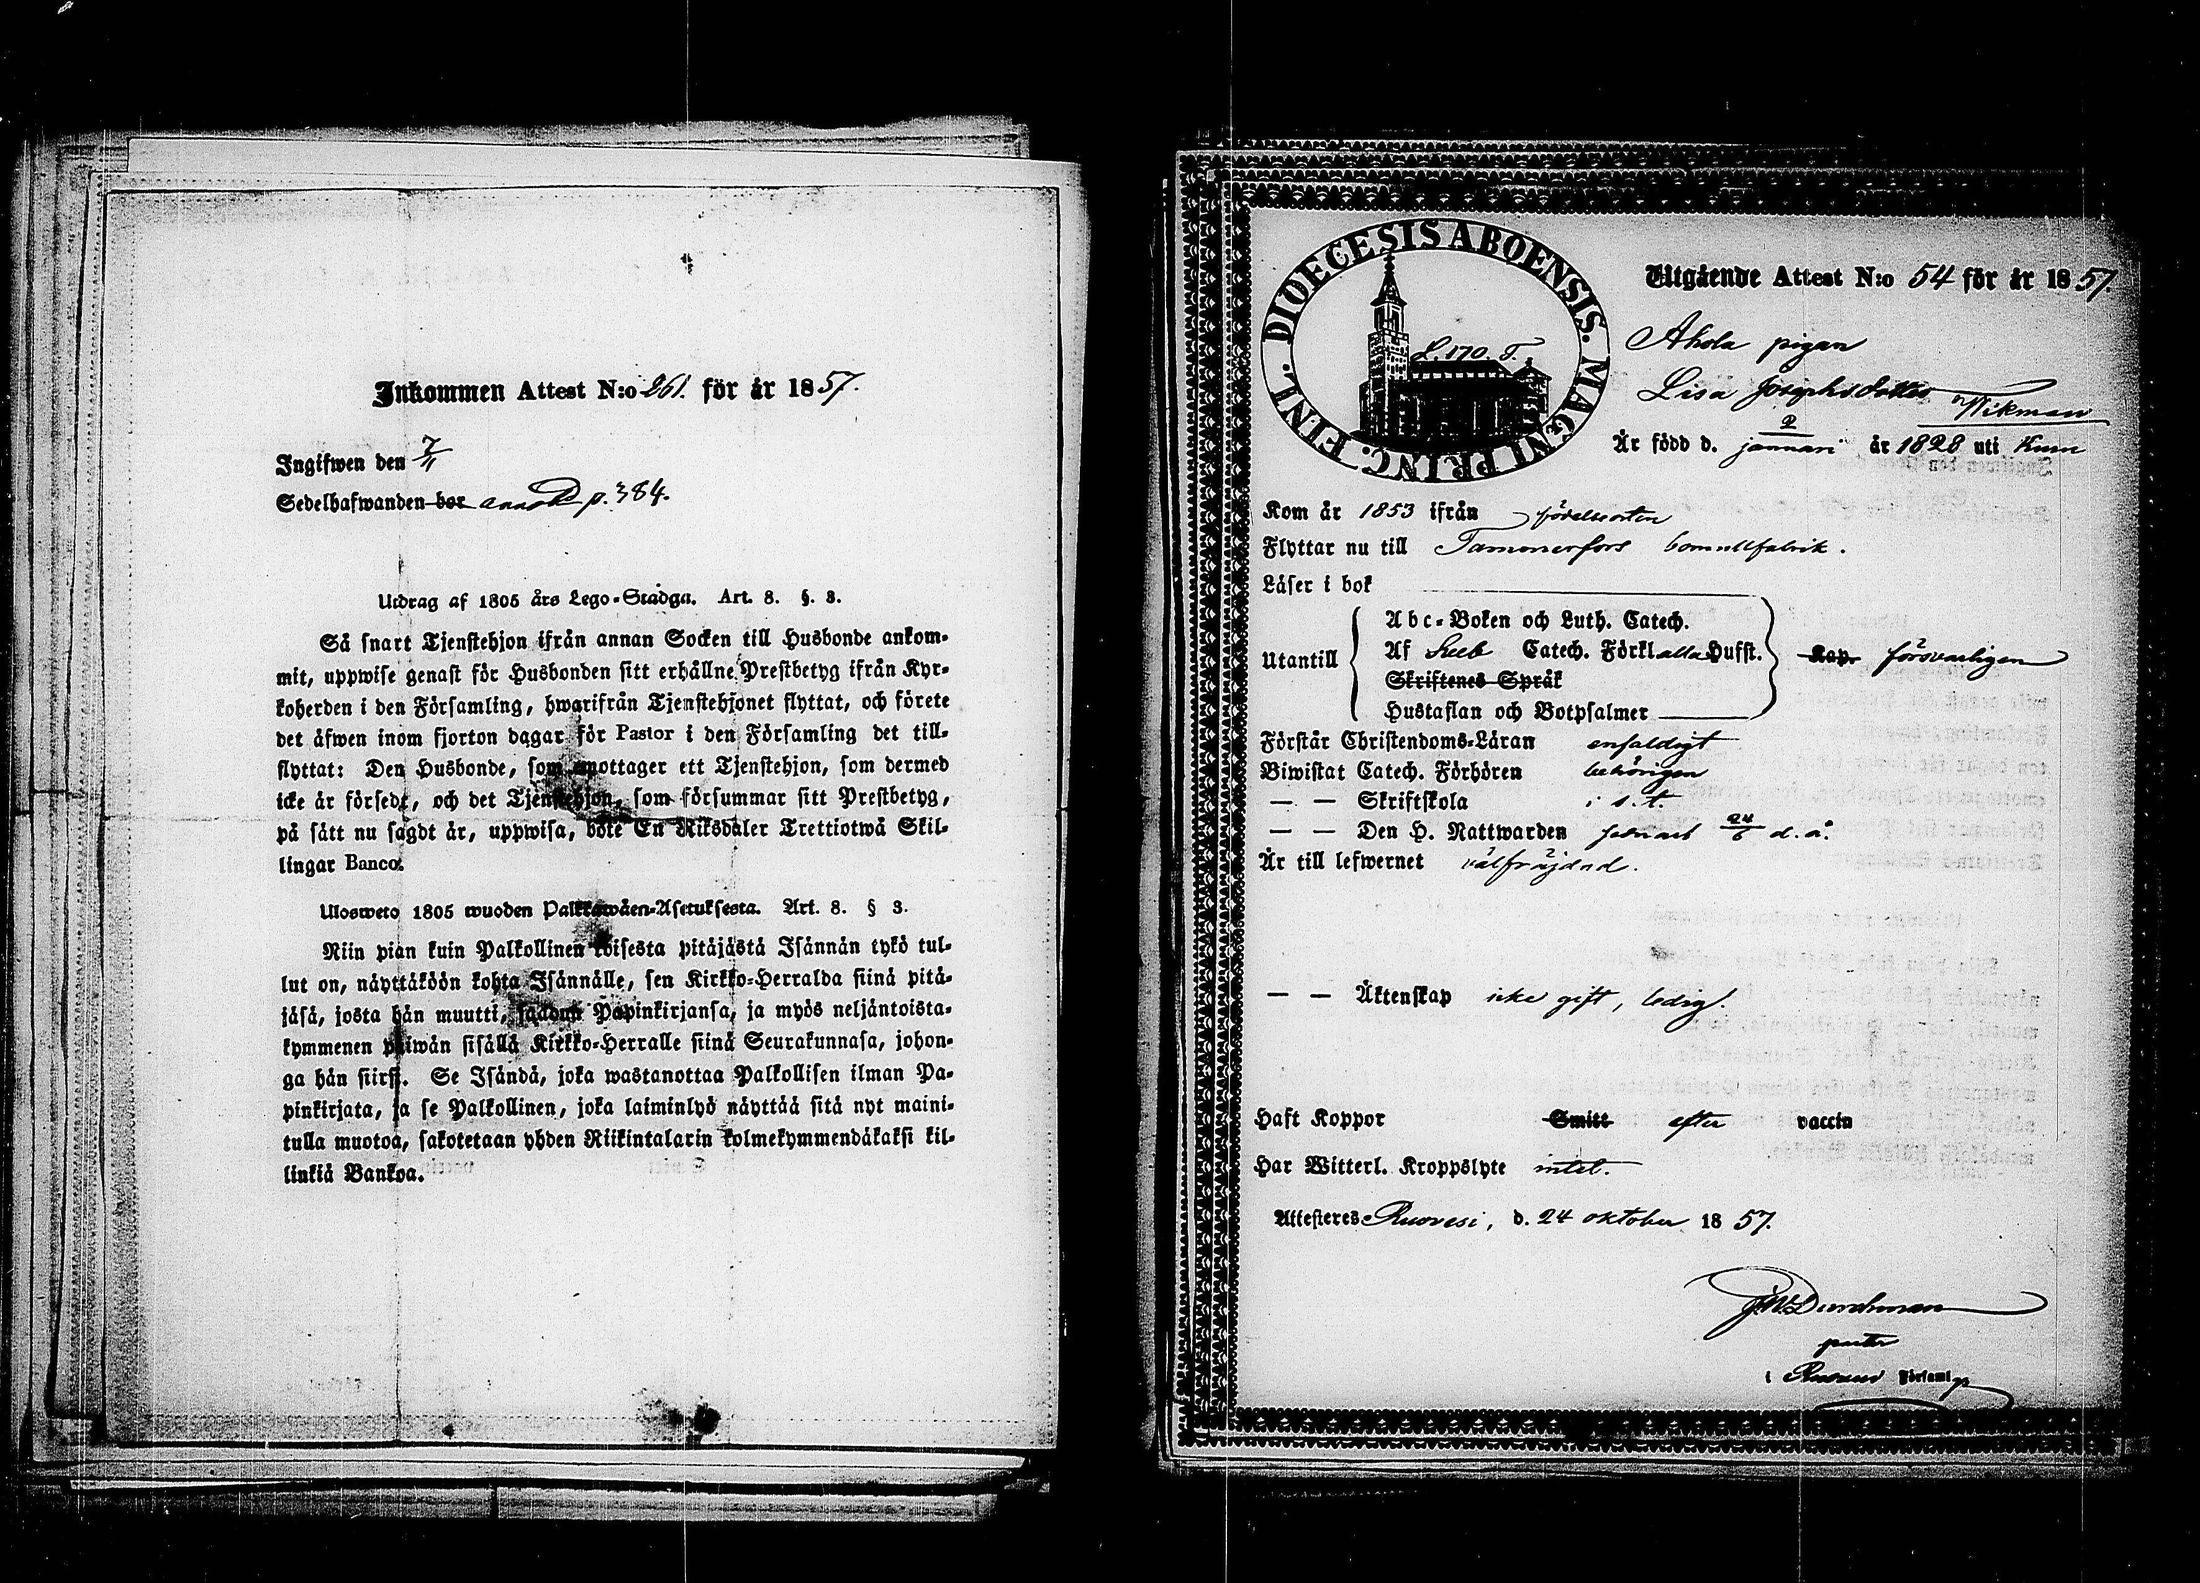 Inkommen Attest N:o 261. för år 1857.
Ingifwen den 7/11
Sedelhafwanden bor annot. p. 384.
Utdrag af 1805 års Lego-Stadga. Art. 8. §. 3.
Så snart Tjenstehjon ifrån annan Socken till Husbonde ankom-
mit, uppwise genast för Husbonden sitt erhållne Prestbetyg ifrån Kyr-
koherden i den Församling, hwarifrån Tjenstehjonet flyttat, och förete
det äfwen inom fjorton dagar för Pastor i den Församling det till-
flyttat: Den Husbonde, som emottager ett Tjenstehjon, som dermed
icke är försedt, och det Tjenstehjon, som försummar sitt Prestbetyg,
på sätt nu sagdt är, uppwisa, böte En Riksdaler Trettiotwå Skil-
lingar Banco.
Ulosweto 1805 wuoden Palkkawäen-Asetuksesta. Art. 8. § 3.
Niin pian kuin Palkollinen toisesta pitäjästä Isännän tykö tul-
lut on, näyttäköön kohta Isännälle, sen Kirkko-Herralda siinä pitä-
jäsä, josta hän muutti, saadun Papinkirjansa, ja myös neljäntoista-
kymmenen päiwän sisällä Kirkko-Herralle siinä Seurakunnasa, johon-
ga hän siirsi. Se Isändä, joka wastanottaa Palkollisen ilman Pa-
pinkirjata, ja se Palkollinen, joka laiminlyö näyttää sitä nyt maini-
tulla muotoa, sakotetaan yhden Riikintalarin kolmekymmendäkaksi kil-
linkiä Bankoa.
DIOECESIS ABOENSIS. MAGNI PRINC. FINL.
L. 170. F.
Utgående Attest N:o 54 för år 1857.
Ahola pigan
Lisa Josephsdotter Wikman
Är född d. 2 januari år 1828 uti Kuru
Kom år 1853 ifrån födelseorten
Flyttar nu till Tammerfors bomullfabrik.
Läser i bok
Utantill
Abc-Boken och Luth. Catech.
Af Seeb Catech. Förkl alla Hufst.
Skriftenes Språk
Hustaflan och Botpsalmer
Kap. försvarligen
Förstår Christendoms-Läran enfaldigt
Biwistat Catech. Förhören behörigen
— — Skriftskola i s. t.
— — Den H. Nattwarden senast 24/6 d. å.
Är till lefwernet välfräjdad.
— — Äktenskap icke gift, ledig.
Haft Koppor Smitt efter vaccin
Har Witterl. Kroppslyte intet.
Attesteres Ruovesi, d. 24 oktober 1857.
Durchman
i Ruovesi Församl